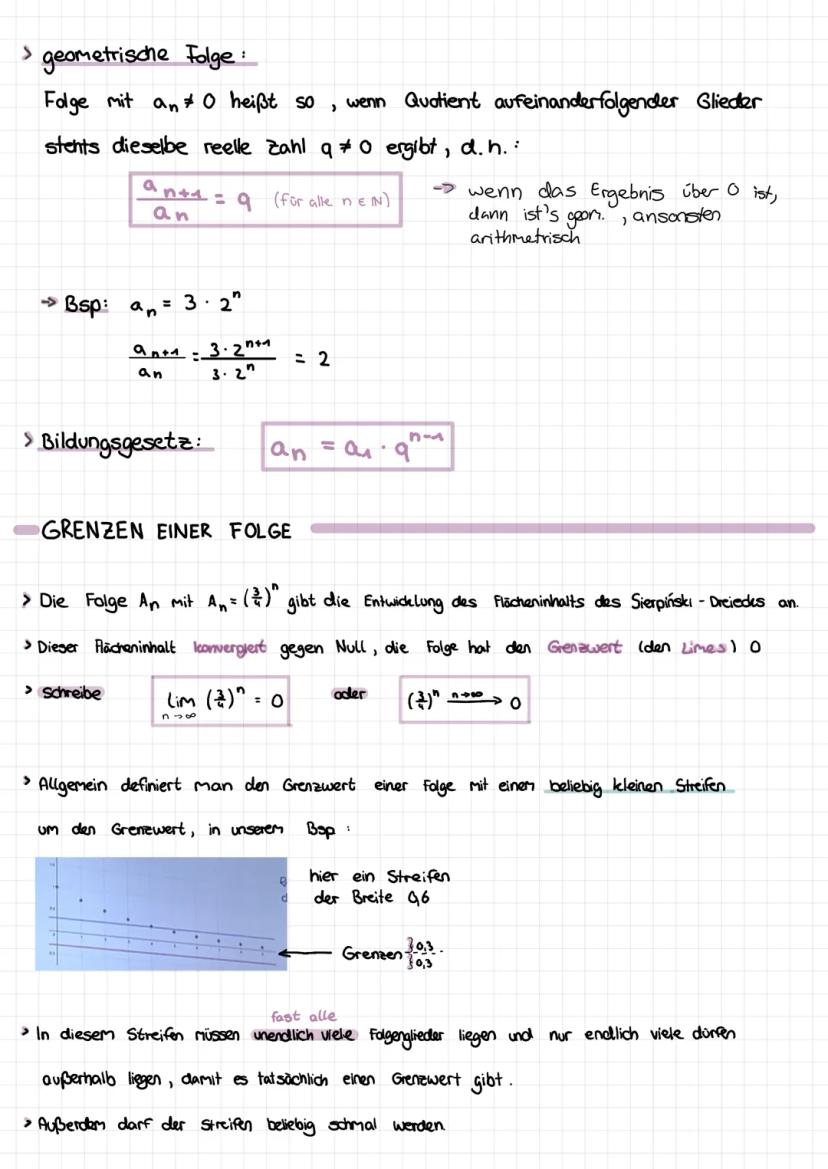 > geometrische Folge:
Folge mit aₙ ≠ 0 heißt so, wenn Quotient aufeinanderfolgender Glieder
stehts dieselbe reelle Zahl q ≠ 0 ergibt, d.h.:
aₙ₊₁/aₙ = q (für alle n ∈ ℕ)
-> wenn das Ergebnis über 0 ist,
dann ist's geom., ansonsten
arithmetrisch
-> Bsp: aₙ = 3 · 2ⁿ
aₙ₊₁/aₙ = 3·2ⁿ⁺¹/3·2ⁿ = 2
> Bildungsgesetz: aₙ = a₁ · qⁿ⁻¹
GRENZEN EINER FOLGE
> Die Folge Aₙ mit Aₙ = (3/4)ⁿ gibt die Entwicklung des Flächeninhalts des Sierpinski-Dreiecks an.
> Dieser Flächeninhalt konvergiert gegen Null, die Folge hat den Grenzwert (den Limes) 0
> Schreibe lim n→∞ (3/4)ⁿ = 0 oder (3/4)ⁿ n→∞ → 0
> Allgemein definiert man den Grenzwert einer Folge mit einem beliebig kleinen Streifen
um den Grenzwert, in unserem Bsp:
hier ein Streifen
der Breite 0,6
Grenzen } 0,3
} 0,3
fast alle
> In diesem Streifen müssen unendlich viele Folgenglieder liegen und nur endlich viele dürfen
außerhalb liegen, damit es tatsächlich einen Grenzwert gibt.
> Außerdem darf der Streifen beliebig schmal werden